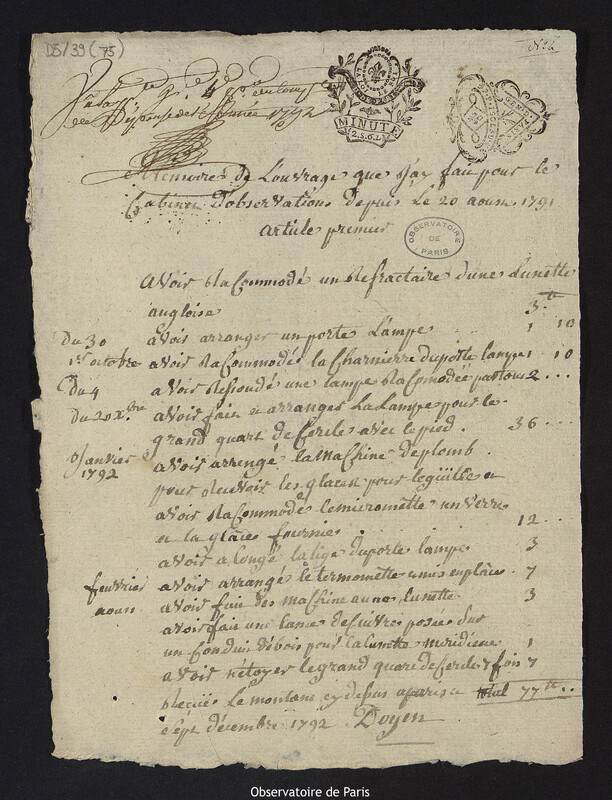 D5/39 (75)
No. 2
de dépense de l'année 1792
MINUTE
2.S.6.D.
Mémoires de Louvrage que J'ay fait pour le
Cabinet d'observations depuis Le 20 aoust 1791
article premier
OBSERVATOIRE
DE
PARIS
avoir Racommodé un Refractaire d'une Lunette
angloise 3.tt
Du 30 avoir arranger un porte Lampe 1 10
1er octobre avoir Racommodés la Charnierre du porte lampe 1 10
Du 4 avoir Resoudé une lampe Racomodée partous 2 ...
Du 20 X.bre avoir fait et arranger La Lampe pour le
grand quart de Cercle avec le pied . 36 ...
Janvier
1792
avoir arrengé la Machine de plomb
pour Recevoir les glaces pour leguille et
avoir Racommodé le micromette un verre
et la glace fournie 12 ...
avoir alongé la tige du porte lampe 3
fevrier avoir arrangé le termomette et mis en place . 7
aoust avoir fait des Machine a une lunette 3
avoir fait une lame de cuivre posée sur
un Conduit de bois pour la lunette meridiene 1
avoir nétoyer le grand quart de Cercle 7 fois 7
Reçue Le montant cy dessus a paris ce total 77 tt ...
sept décembre 1792 Doyen
Observatoire de Paris